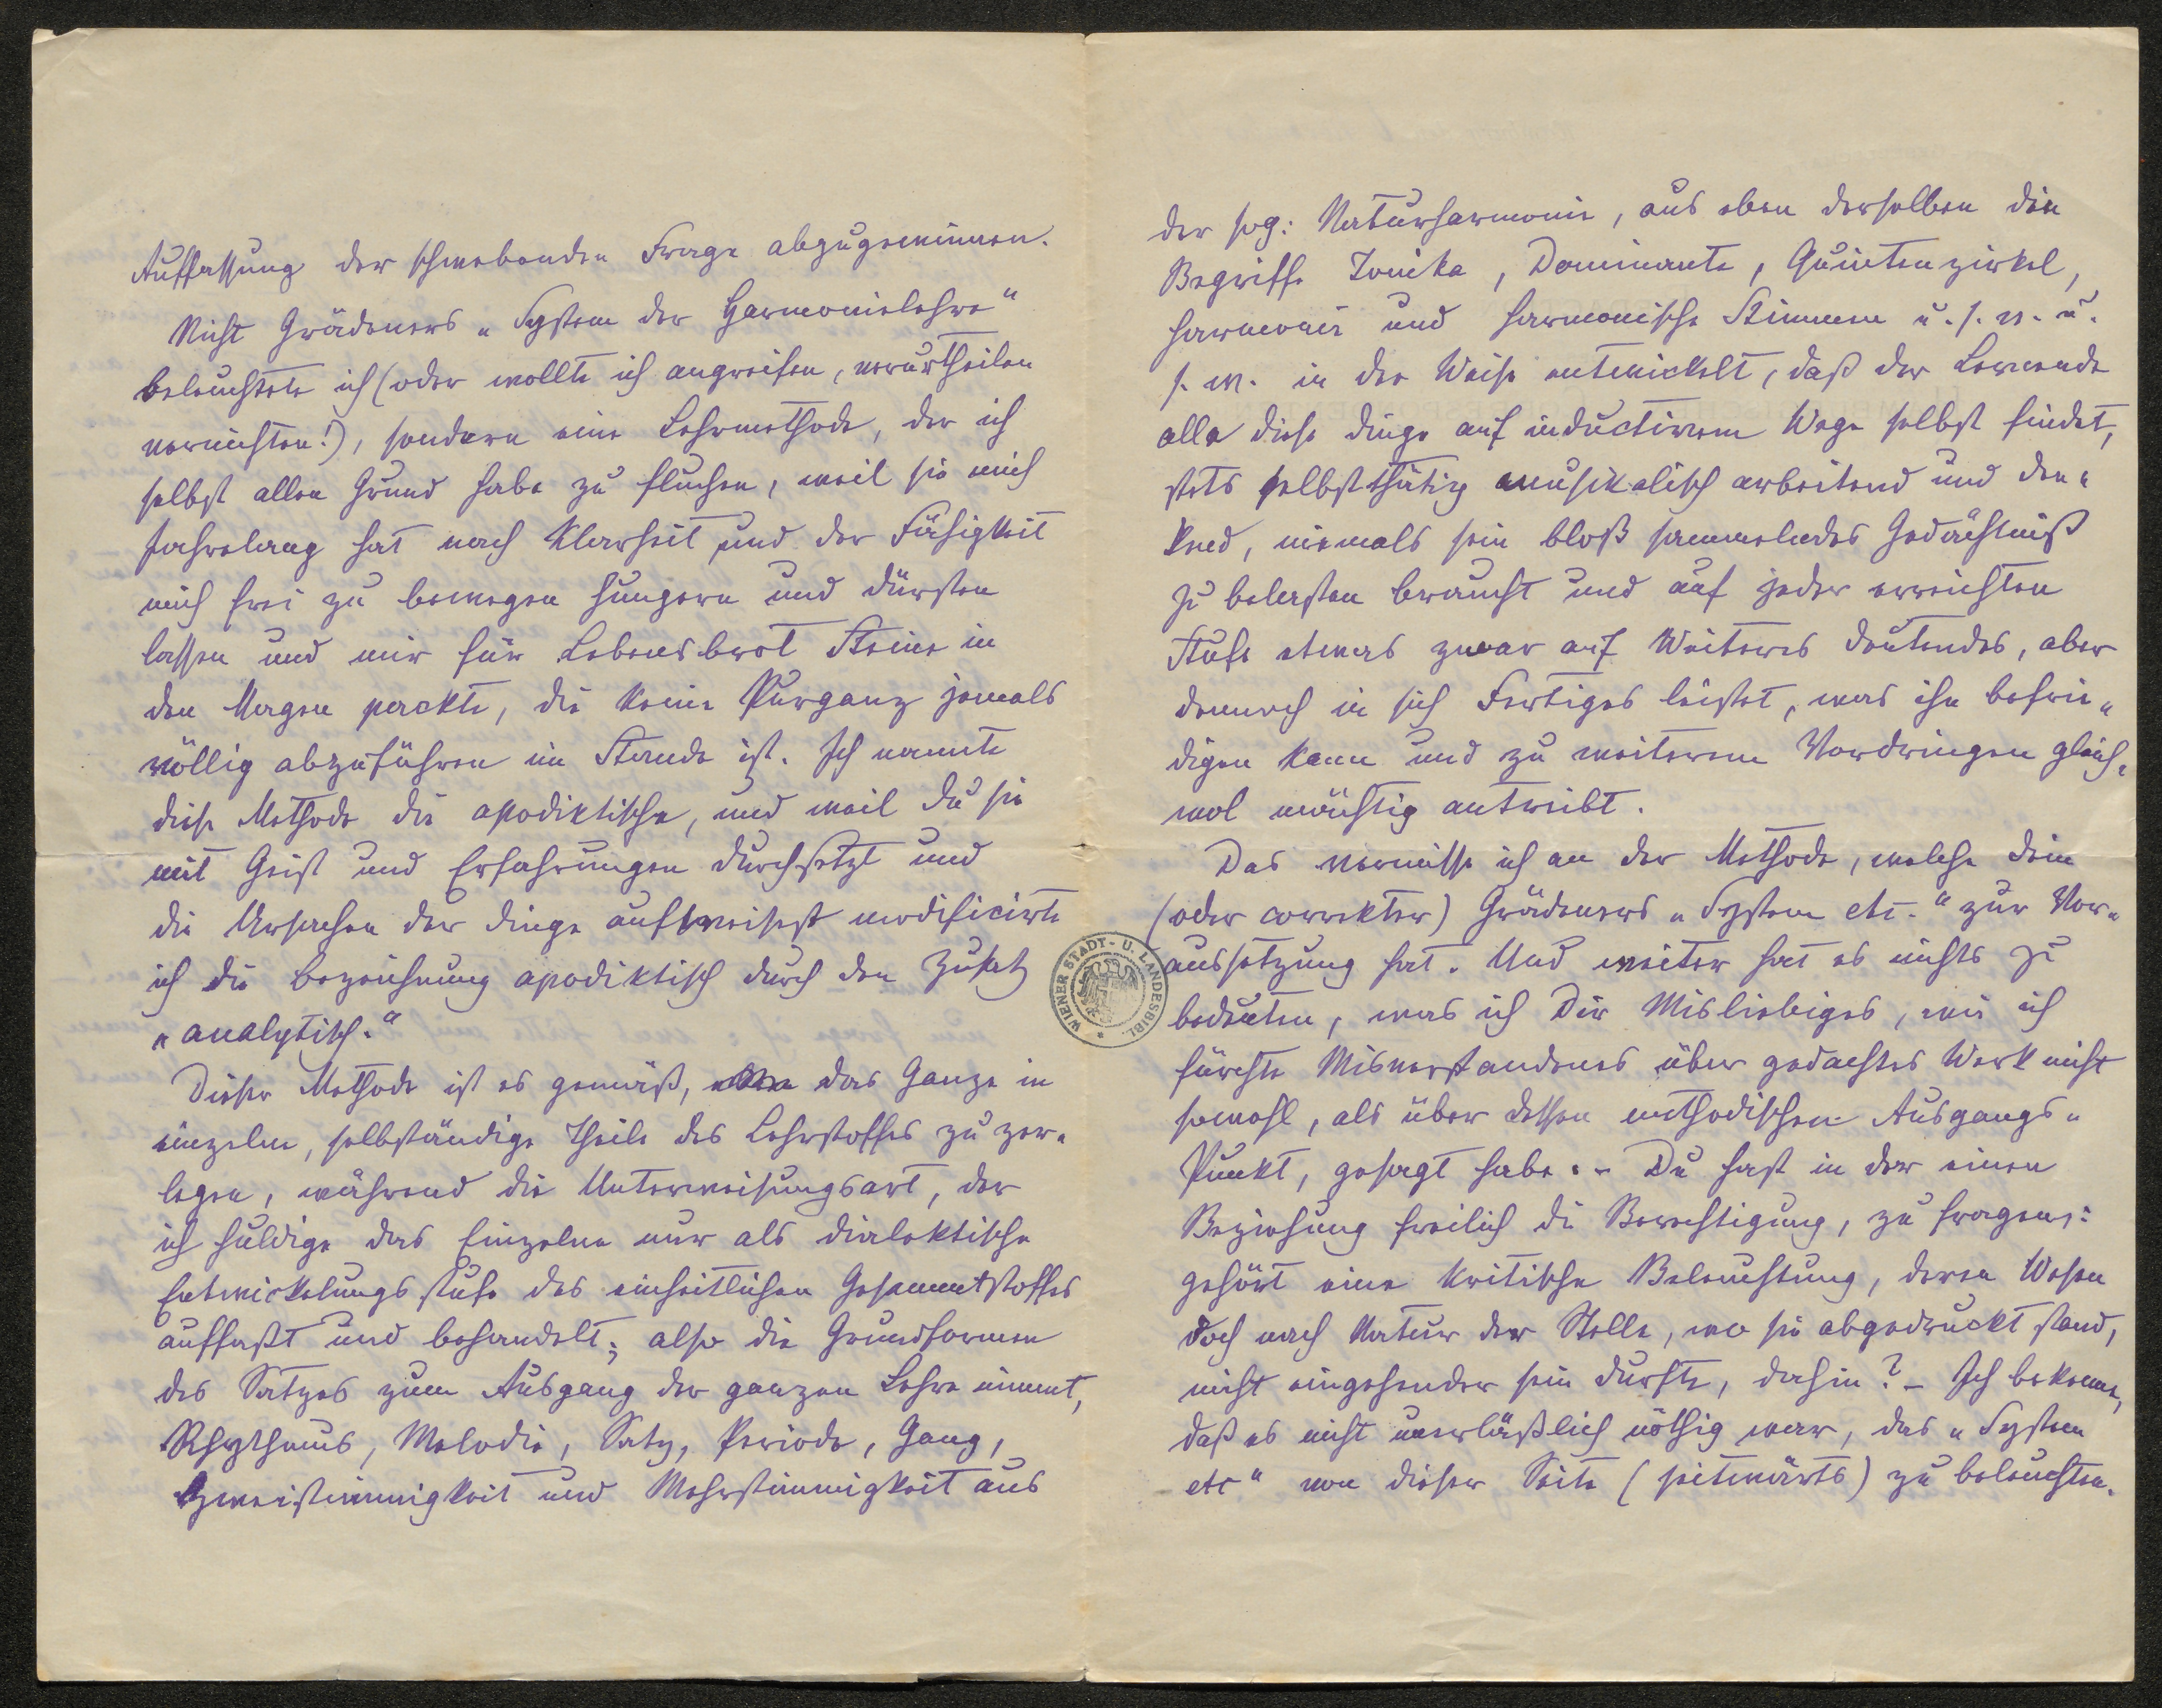 Auffassung der schwebenden Frage abzugewinnen.
Nicht Grädeners „System der Harmonielehre“
beleuchtete ich (oder wollte ich angreifen, verurtheilen
vernichten!), sondern eine Lehrmethode, der ich
selbst allen Grund habe zu fluchen, weil sie mich
jahrelang hat nach Klarheit und der Fähigkeit
mich frei zu bewegen hungern und dürsten
lassen und mir für Lebensbrot Steine in
den Magen packte, die keine Purganz jemals
völlig abzuführen im Stande ist. Ich nannte
diese Methode die apodiktische, und weil du sie
mit Geist und Erfahrungen durchsetzt und
die Ursachen der Dinge aufweisest modificirte
ich die Bezeichnung apodiktisch durch den Zusatz
„analytisch.“
Dieser Methode ist es gemäß, das Ganze in
einzelne, selbständige Theile des Lehrstoffes zu zer-
legen, während die Unterweisungsart, der
ich huldige das Einzelne nur als dialektische
Entwickelungsstufe des einheitlichen Gesammtstoffes
auffaßt und behandelt; also die Grundformen
des Satzes zum Ausgang der ganzen Lehre nimmt,
Rhythmus, Melodie, Satz, Periode, Gang,
Zweistimmigkeit und Mehrstimmigkeit aus
der sog: Naturharmonie, aus eben derselben die
Begriffe Tonika, Dominante, Quintenzirkel,
Harmonie und harmonische Stimmen u. s. w. u.
s. w. in der Weise entwickelt, daß der Lernende
alle diese Dinge auf inductivem Wege selbst findet,
stets selbstthätig musikalisch arbeitend und den-
kend, niemals sein bloß sammelndes Gedächtniß
zu belasten braucht und auf jeder erreichten
Stufe etwas zwar auf Weiteres deutendes, aber
dennoch in sich Fertiges leistet, was ihn befrie-
digen kann und zu weiterem Vordringen gleich-
wol mächtig antreibt.
Das vermisse ich an der Methode, welche dein
(oder correkter) Grädeners „System etc.“ zur Vor-
aussetzung hat. Und weiter hat es nichts zu
bedeuten, was ich Dir Misliebiges, wie ich
fürchte Misverstandenes über gedachtes Werk nicht
sowohl, als über dessen methodischen Ausgangs-
Punkt, gesagt habe. – Du hast in der einen
Beziehung freilich die Berechtigung, zu fragen:
gehört eine kritische Beleuchtung, deren Wesen
doch nach Natur der Stelle, wo sie abgedruckt stand,
nicht eingehender sein durfte, dahin? – Ich bekenne,
daß es nicht unerläßlich nöthig war, das „System
etc“ von dieser Seite (seitwärts) zu beleuchten.
WIENER STADT- U. LANDESBIBL.